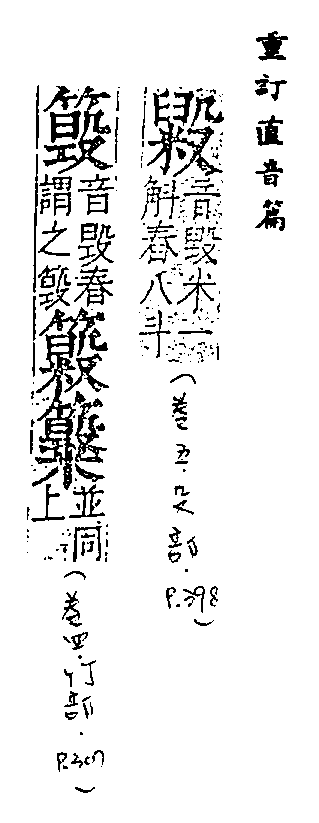 重訂直音篇
毇
音毀米一
斛舂八斗
(卷五.殳部.P.398)
音毀舂
謂之
並同
上
(卷四.竹部.